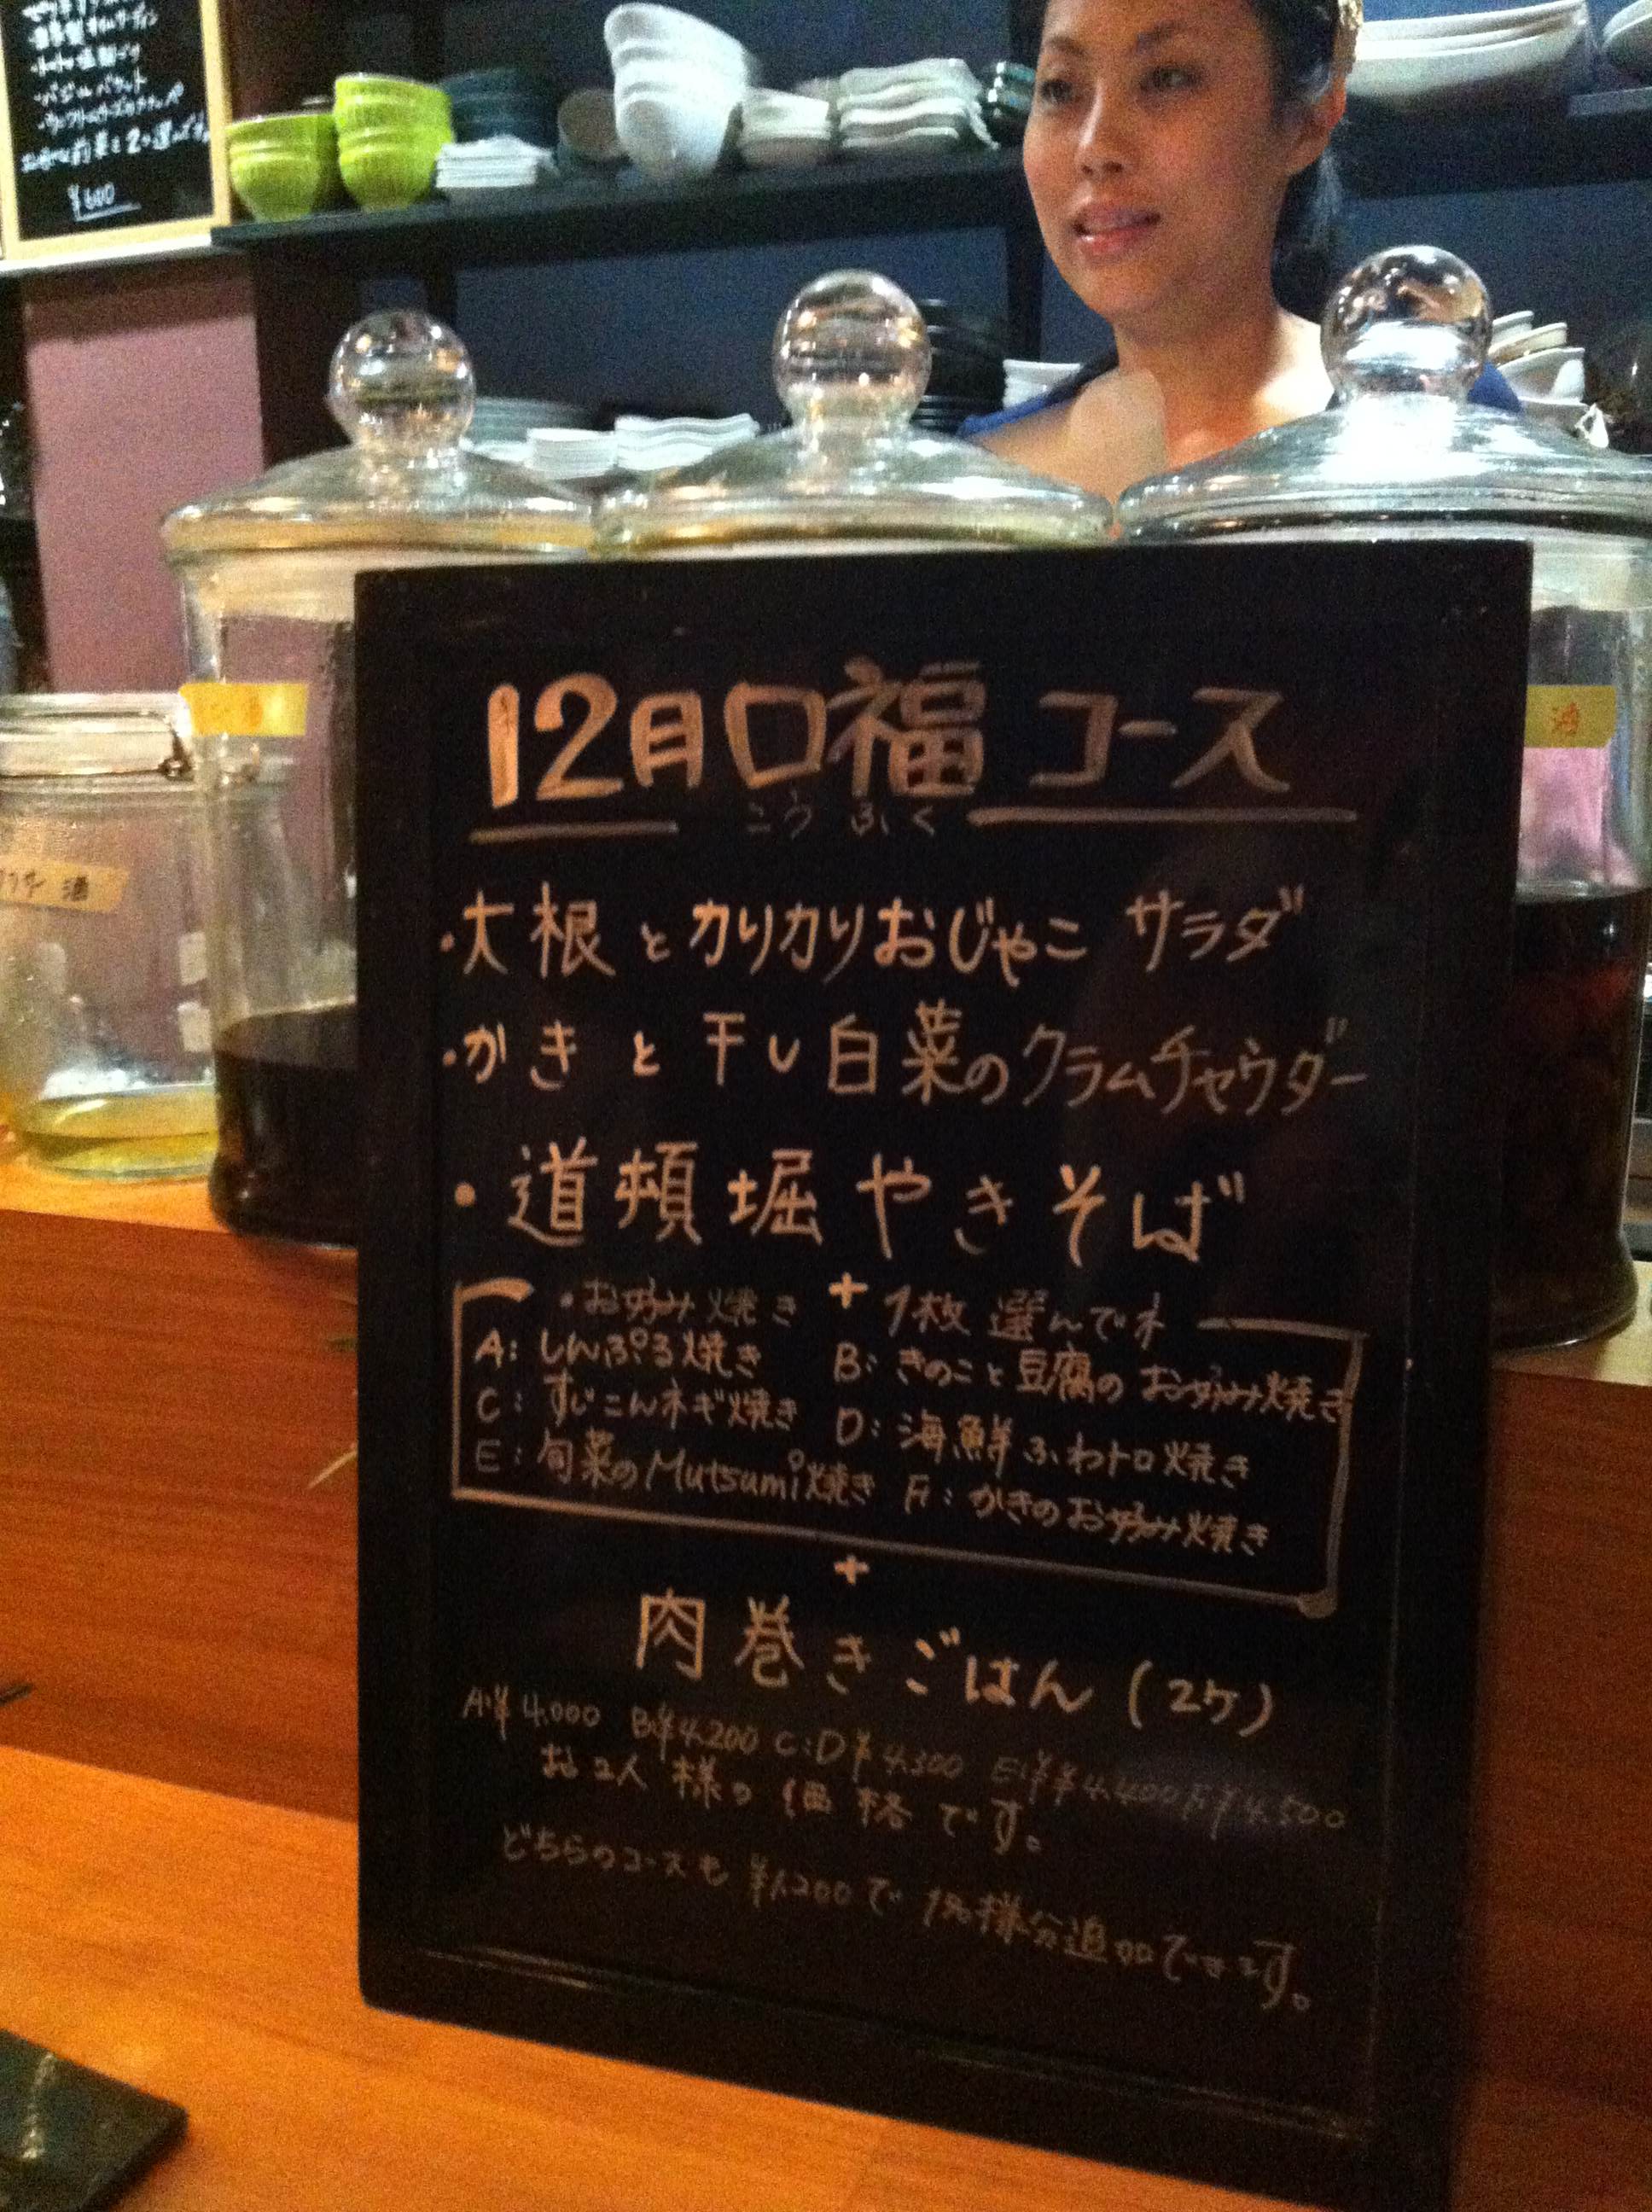 ¥600
12月口福コース
こうふく
・大根とカリカリおじゃこサラダ
・かきと干し白菜のクラムチャウダー
・道頓堀やきそば
・お好み焼き + 1枚選んでネ
A:しんぷる焼き B:きのこと豆腐のお好み焼き
C:すじこんネギ焼き D:海鮮ふわトロ焼き
E:旬菜のMutsumi焼き F:かきのお好み焼き
+
肉巻きごはん(2ケ)
A:¥4,000 B:¥4,200 C:D¥4,300 E:¥¥4,400 F:¥4,500
お2人様の価格です。
どちらのコースも¥1,200で1名様分追加できます。
酒
酒